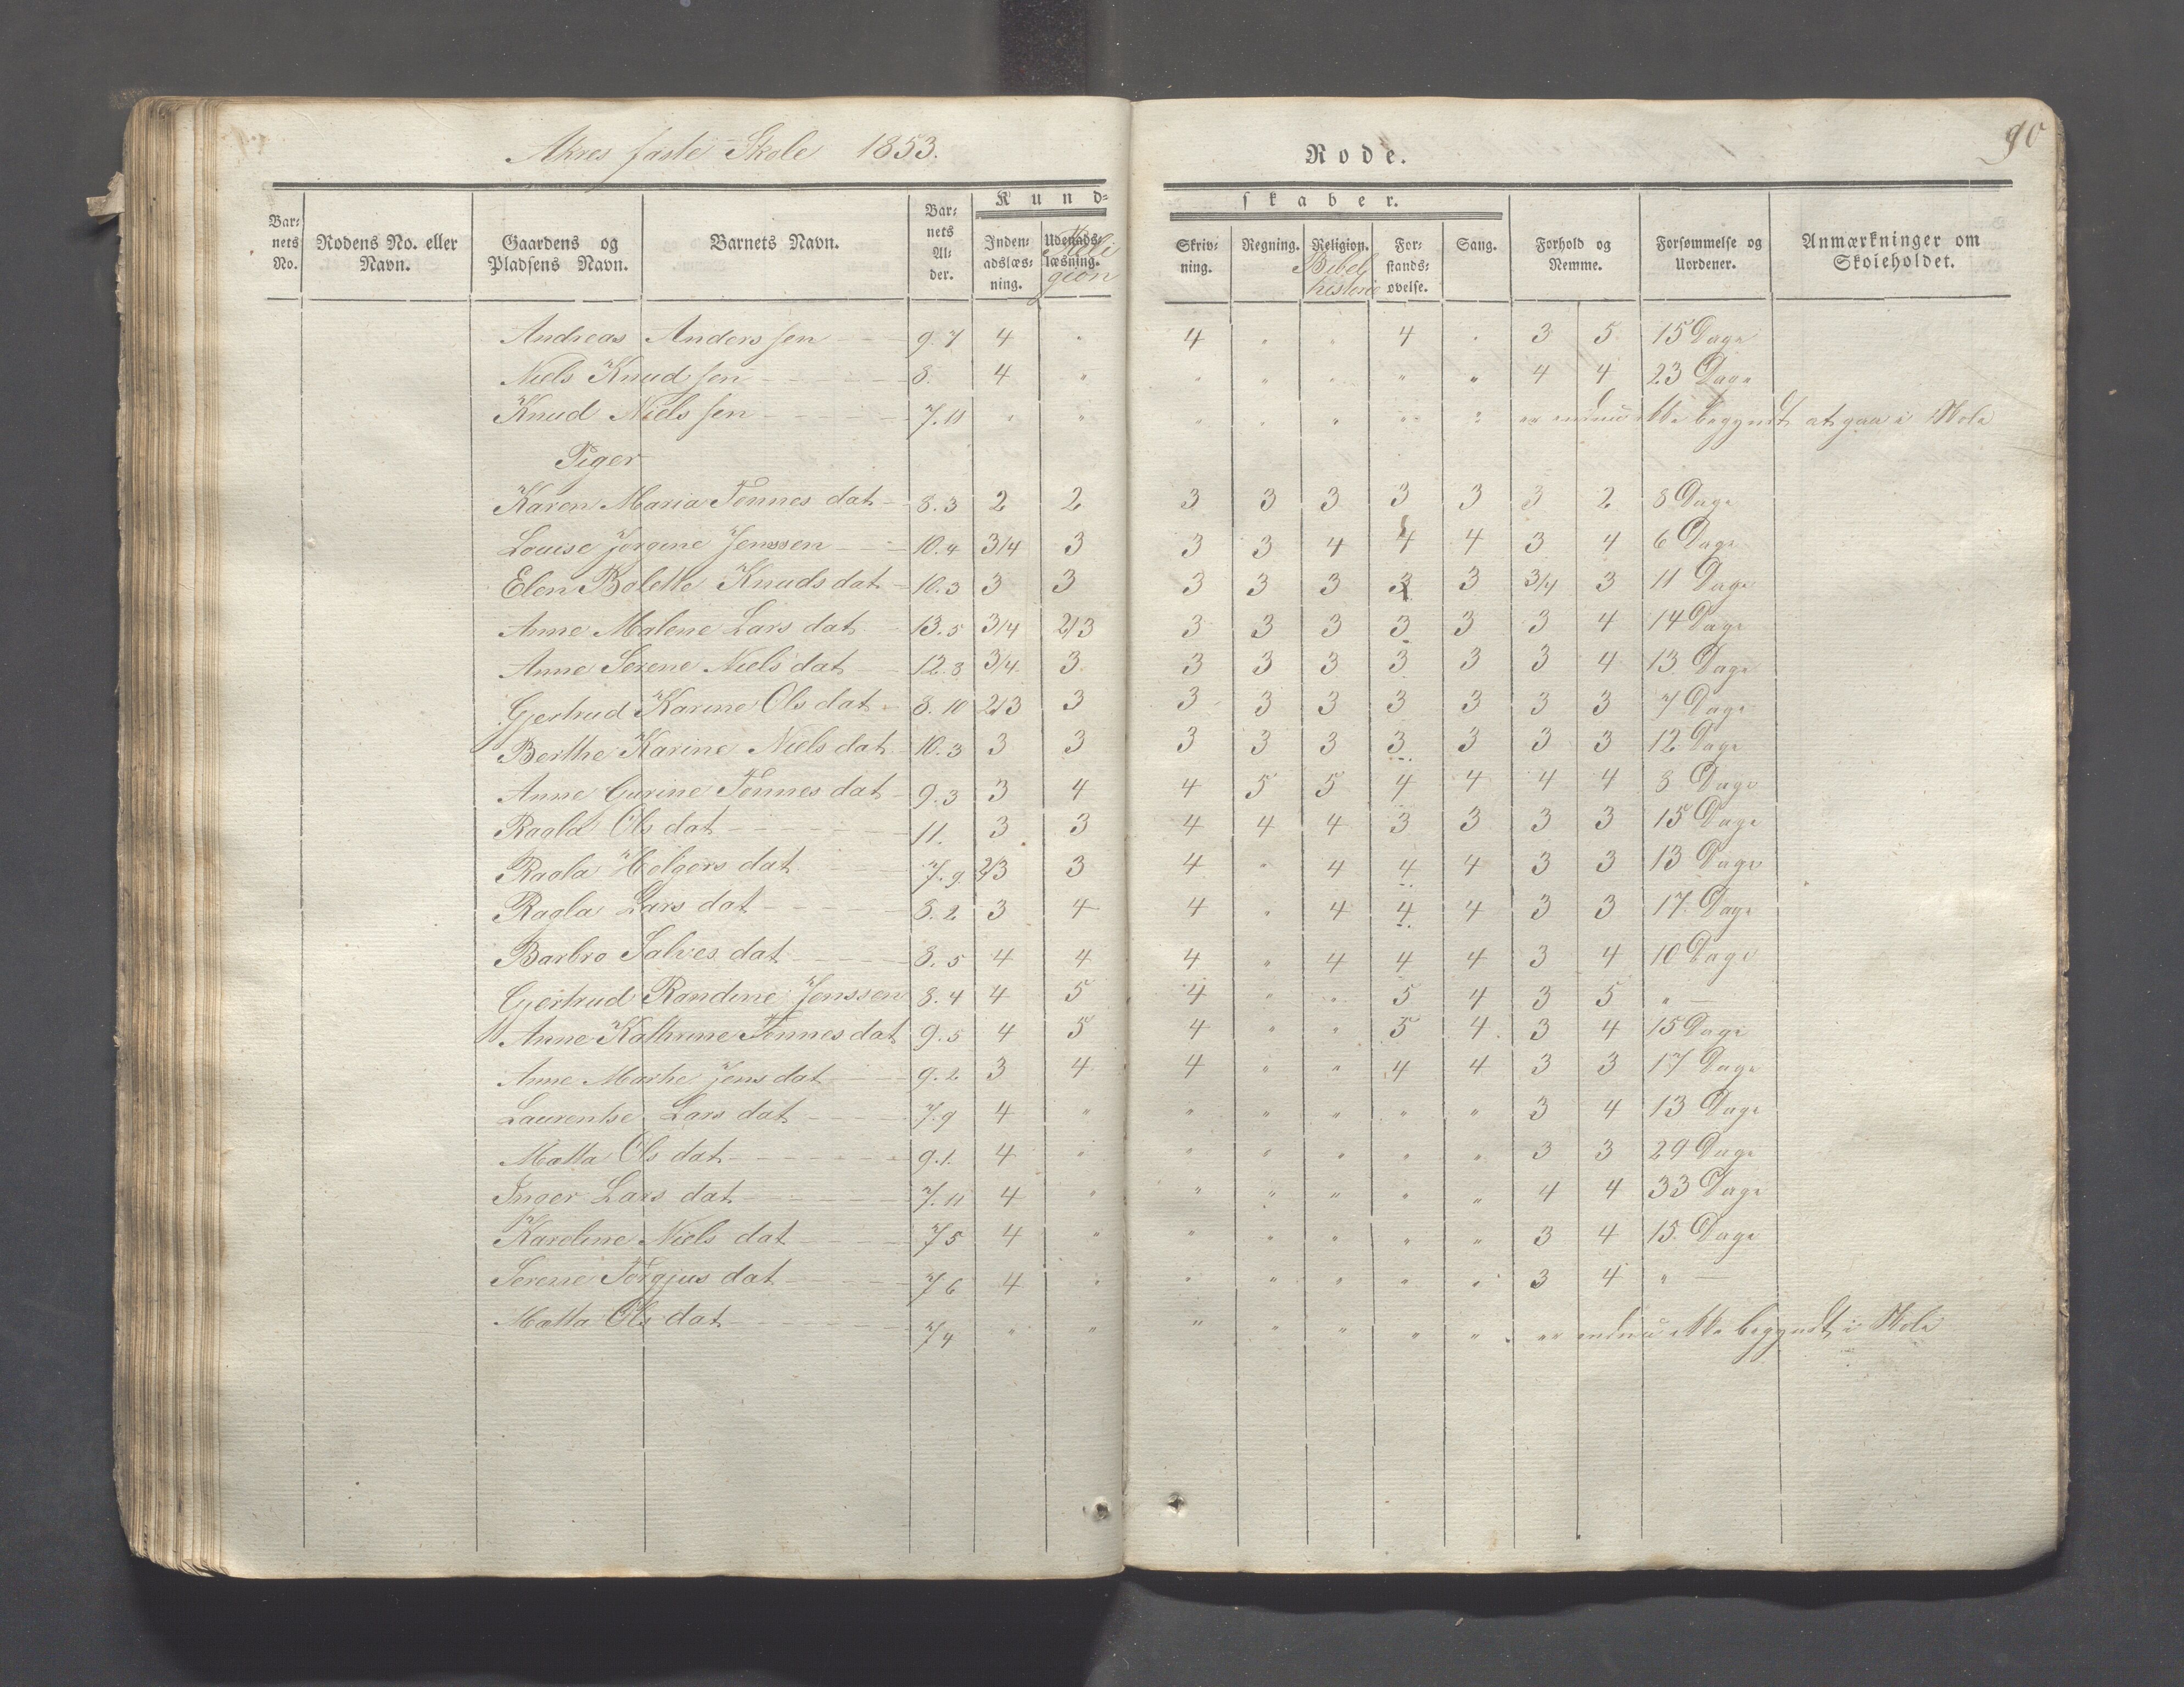 Akres faste Skole 1853.
Rode.
90
Kund-
skaber.
Barnets No.
Rodens No. eller Navn.
Gaardens og Pladsens Navn.
Barnets Navn.
Barnets Alder.
Indenadslæsning.
Udenadslæsning. Religion
Skrivning.
Regning.
Religion. Bibelhistorie
Forstandsøvelse.
Sang.
Forhold og Nemme.
Forsømmelse og Uordener.
Anmærkninger om Skoleholdet.
Andreas Anderssen - - 9.7 4 " 4 " " 4 " 3 5 15 Dage
Niels Knudsen - - - - 8. 4 " " " " " " 4 4 23 Dage
Knud Nielssen - - - - 7.11 " " " " " " " er endnu ikke begyndt at gaa i Skole
Piger
Karen Maria Tønnesdat - 8.3 2 2 3 3 3 3 3 3 2 8 Dage
Louise Jørgine Jenssen - - 10.4 3/4 3 3 3 4 4 4 3 4 6 Dage
Elen Bolette Knudsdat - 10.3 3 3 3 3 3 3 3 3/4 3 11 Dage
Anne Malene Larsdat - 13.5 3/4 2/3 3 3 3 3 3 3 4 14 Dage
Anne Serene Nielsdat - - 12.8 3/4 3 3 3 3 3 3 3 4 13 Dage
Gjertrud Karine Olsdat - 8.10 2/3 3 3 3 3 3 3 3 3 7 Dage
Berthe Karine Nielsdat - 10.3 3 3 3 3 3 3 3 3 3 12 Dage
Anne Gurine Tønnesdat - 9.3 3 4 4 5 5 4 4 4 4 8 Dage
Ragla Olsdat - - - - 11. 3 3 4 4 4 3 3 3 3 15 Dage
Ragla Holgersdat - - 7.9 2/3 3 4 " 4 4 4 3 3 13 Dage
Ragla Larsdat - - - - 8.2 3 4 4 " 4 4 4 3 3 17 Dage
Barbro Salvesdat - - - 8.5 4 4 4 " 4 4 4 3 4 10 Dage
Gjertrud Randine Jenssen 8.4 4 5 4 " " 5 4 3 5 " —
Anne Kathrine Tønnesdat 9.5 4 5 4 " " 5 4 3 4 15 Dage
Anne Marthe Jensdat - - 9.2 3 4 4 " " 4 4 3 3 17 Dage
Laurentse Larsdat - - - 7.9 4 " " " " " " 3 4 13 Dage
Matta Olsdat - - - - 9.1. 4 " " " " " " 3 3 29 Dage
Inger Larsdat - - - - 7.11 4 " " " " " " 4 4 33 Dage
Karoline Nielsdat - - - 7 5 4 " " " " " " 3 4 15 Dage
Serene Torgjusdat - - - 7 6 4 " " " " " " 3 4 " —
Matta Olsdat - - - - 7 4 " " " " " " " er endnu ikke begyndt i Skole